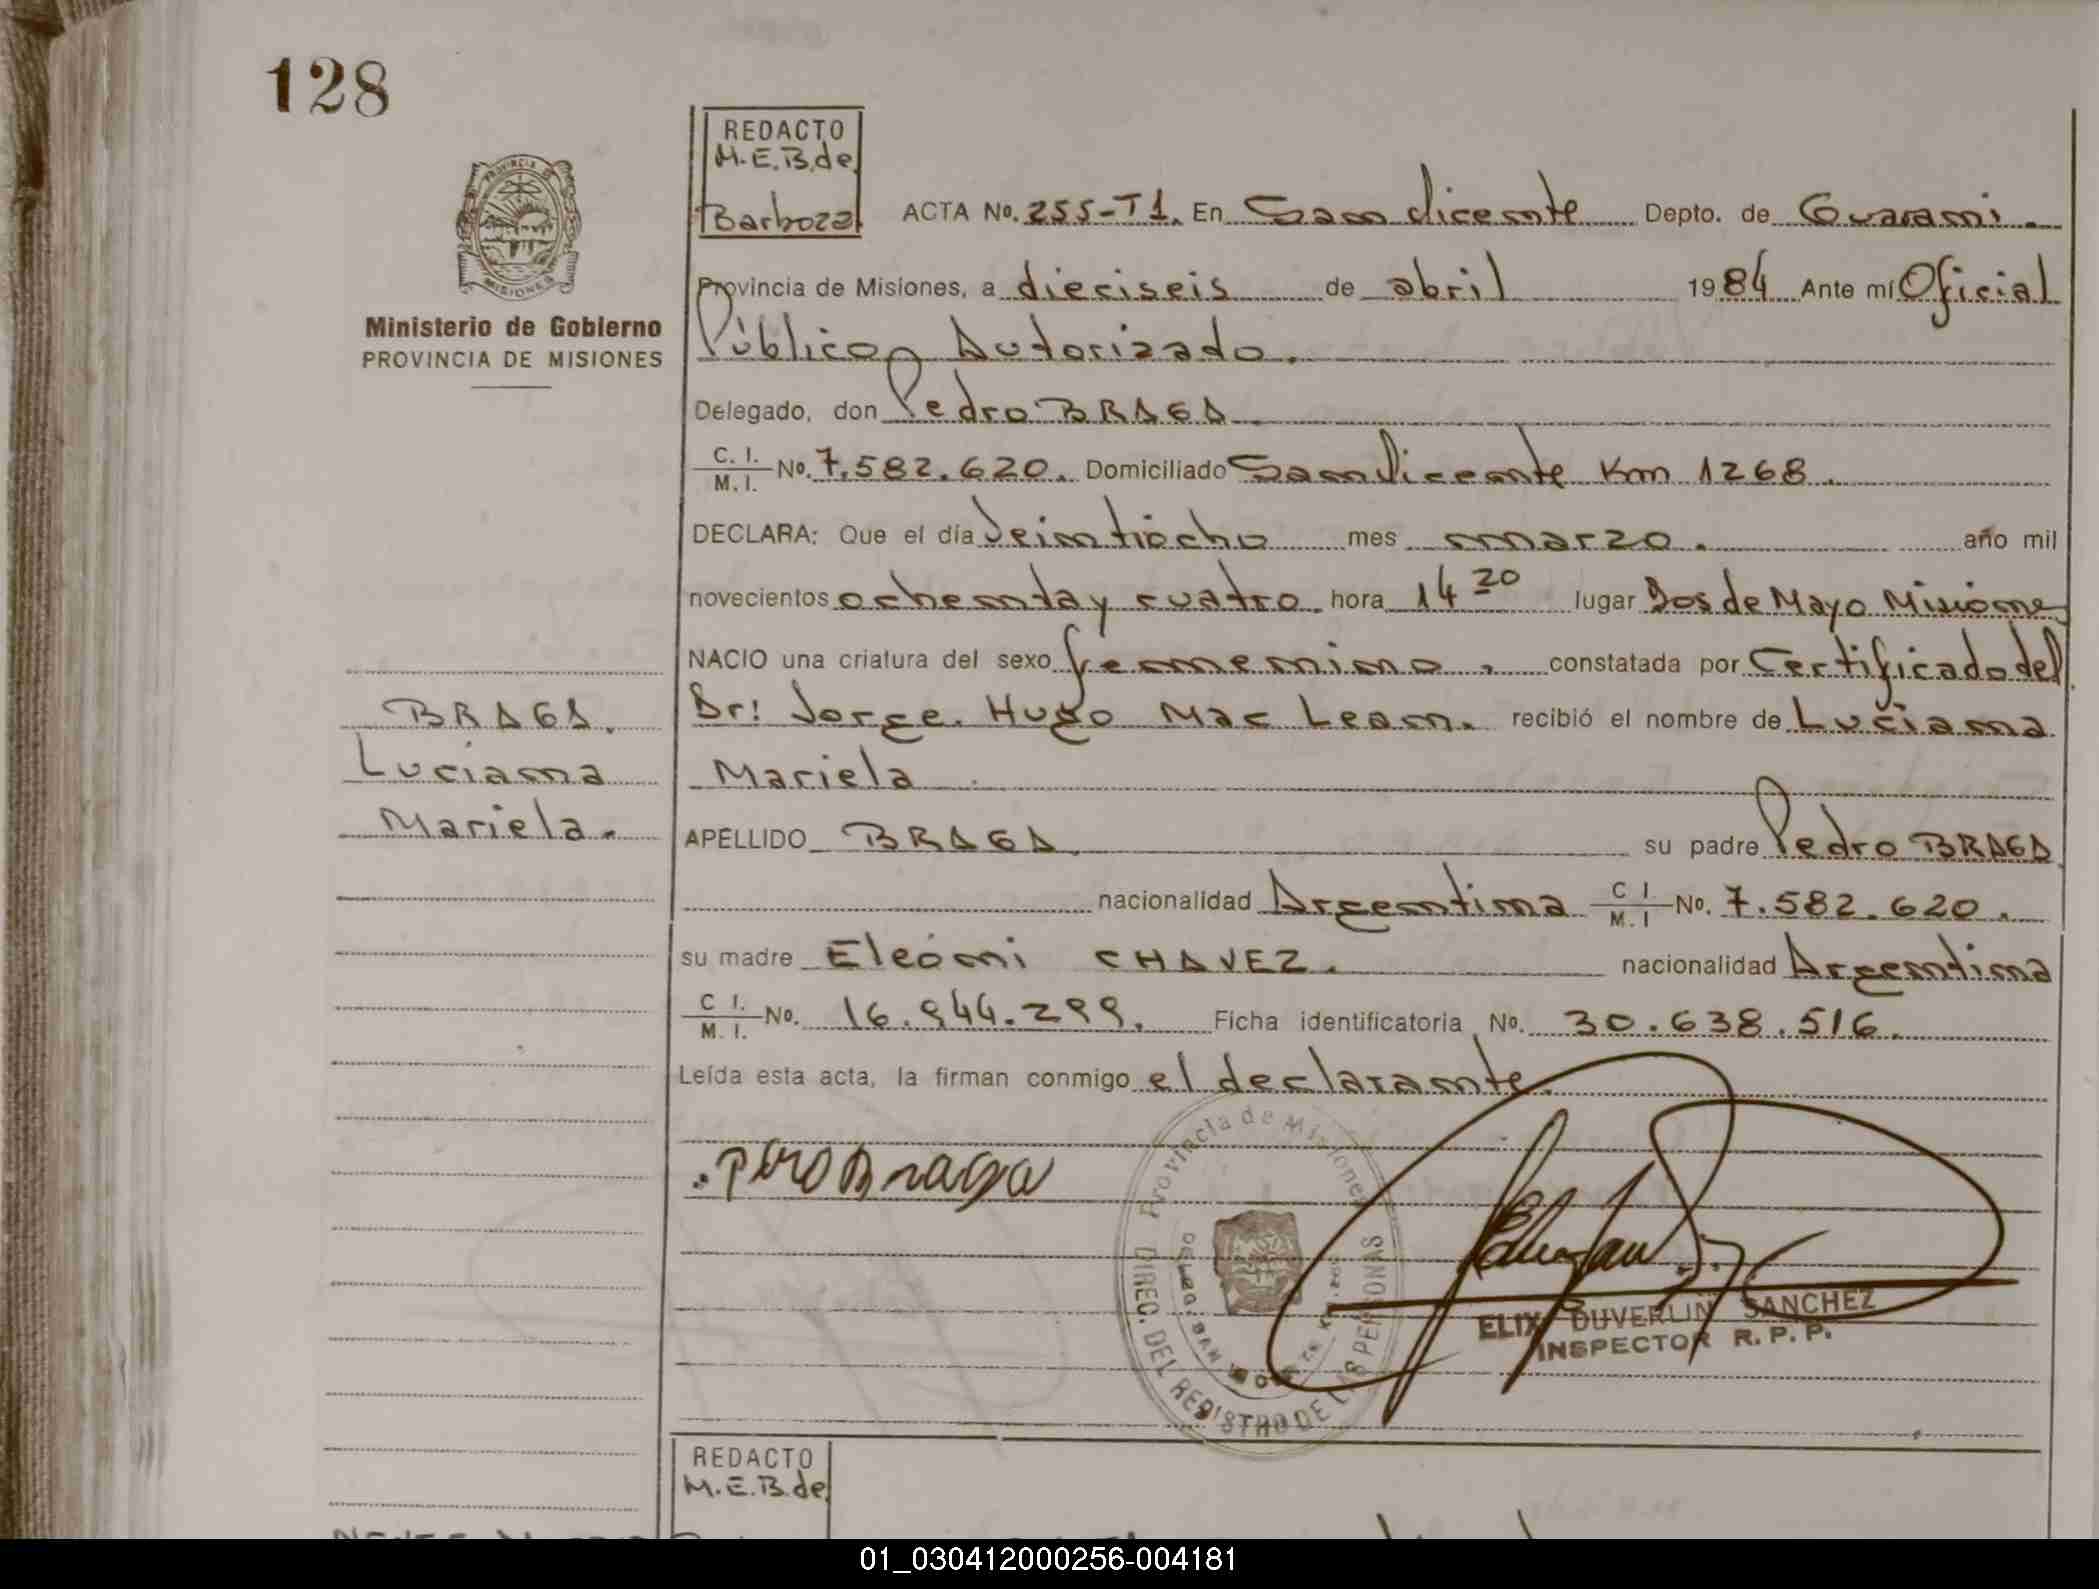 128
Ministerio de Gobierno
PROVINCIA DE MISIONES
REDACTO
M.E.B.de
Barboza
ACTA No. 255-T1. En San Vicente Depto. de Guarani.
Provincia de Misiones, a dieciseis de abril 1984 Ante mí Oficial
Público Autorizado.
Delegado, don Pedro BRAGA
C. I. / M. I. No. 7.582.620. Domiciliado San Vicente Km 1268.
DECLARA: Que el día Veintiocho mes marzo. año mil
novecientos ochenta y cuatro hora 14 20 lugar Dos de Mayo Misiones
NACIO una criatura del sexo femenino, constatada por Certificado del
Dr: Jorge Hugo Mac Lean. recibió el nombre de Luciana
Mariela
APELLIDO BRAGA su padre Pedro BRAGA
nacionalidad Argentina C I. / M. I No. 7.582.620.
su madre Eleóni CHAVEZ. nacionalidad Argentina
C I. / M. I. No. 16.944.299. Ficha identificatoria No. 30.638.516.
Leída esta acta, la firman conmigo el declarante.
BRAGA.
Luciana
Mariela.
Braga
Provincia de Misiones
DIREC. DEL REGISTRO DE LAS PERSONAS
ELIX DUVERLIN SANCHEZ
INSPECTOR R. P. P.
REDACTO
M.E.B.de
01_030412000256-004181